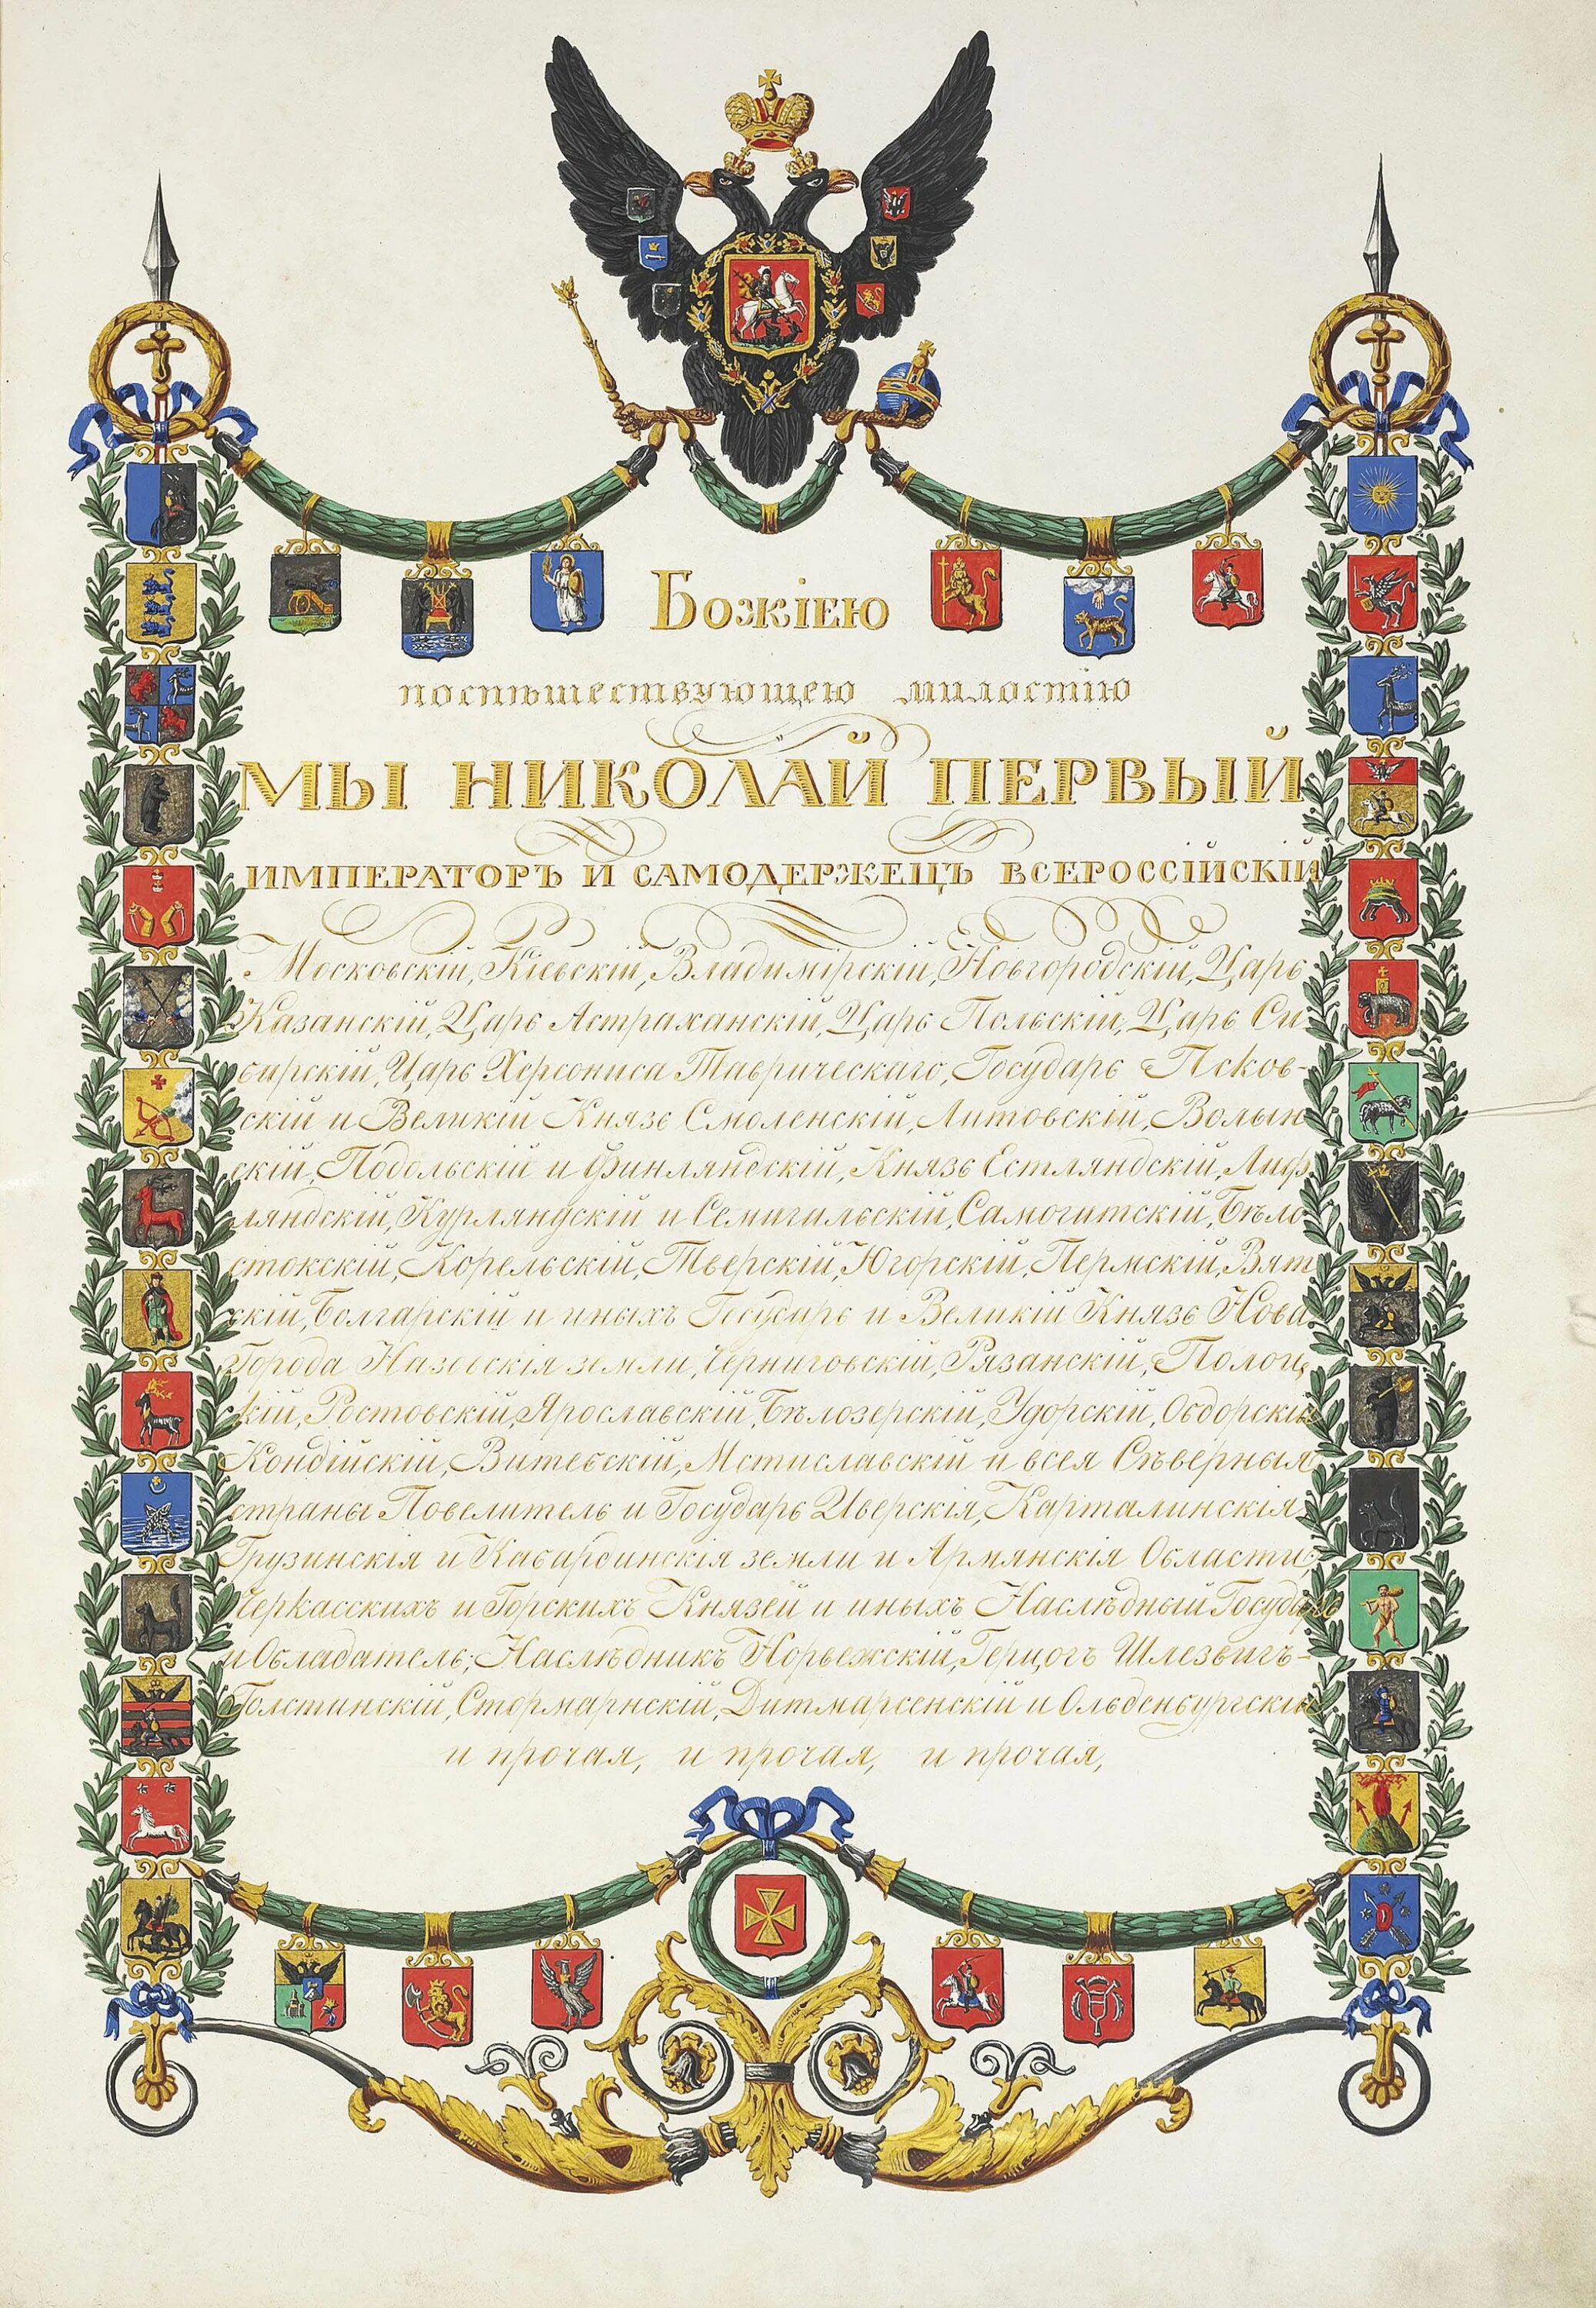 Божіею
поспѣшествующею милостію
МЫ НИКОЛАЙ ПЕРВЫЙ
ИМПЕРАТОРЪ И САМОДЕРЖЕЦЪ ВСЕРОССІЙСКІЙ
Московскій, Кіевскій, Владимірскій, Новгородскій, Царь
Казанскій, Царь Астраханскій, Царь Польскій, Царь Си-
бирскій, Царь Херсониса Таврическаго, Государь Псков-
скій и Великій Князь Смоленскій, Литовскій, Волын
скій, Подольскій и Финляндскій, Князь Естляндскій, Лиф
ляндскій, Курляндскій и Семигальскій, Самогитскій, Бѣло
стокскій, Корельскій, Тверскій, Югорскій, Пермскій, Вят
скій, Болгарскій и иныхъ Государь и Великій Князь Нова
города Низовскія земли, Черниговскій, Рязанскій, Полоц
кій, Ростовскій, Ярославскій, Бѣлозерскій, Удорскій, Обдорскій
Кондійскій, Витебскій, Мстиславскій и всея Сѣверныя
страны Повелитель и Государь Иверскія, Карталинскія
Грузинскія и Кабардинскія земли и Армянскія Области
Черкасскихъ и Горскихъ Князей и иныхъ Наслѣдный Государь
и Обладатель; Наслѣдникъ Норвежскій, Герцогъ Шлезвигъ-
Голстинскій, Стормарнскій, Дитмарсенскій и Ольденбургскій
и прочая, и прочая, и прочая,